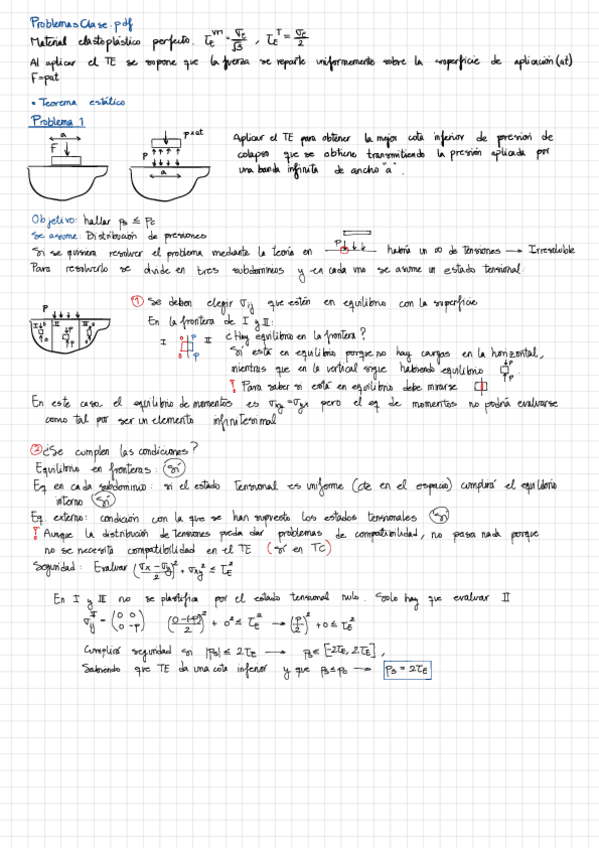 Problemas Clase.pdf
Material elastoplástico perfecto. τ_E^VM = σ_E/√3 , τ_E^T = σ_E/2
Al aplicar el TE se supone que la fuerza se reparte uniformemente sobre la superficie de aplicación (at)
F=pat
• Teorema estático
Problema 1
a
F
p×at
P
a
Aplicar el TE para obtener la mejor cota inferior de presión de
colapso que se obtiene transmitiendo la presión aplicada por
una banda infinita de ancho "a".
Objetivo: hallar ps ≤ pc
Se asume: Distribución de presiones
Si se quisiera resolver el problema mediante la teoría en P habría un ∞ de tensiones → Irresoluble
Para resolverlo se divide en tres subdominios y en cada uno se asume un estado tensional:
P
I II III
① Se deben elegir σij que estén en equilibrio con la superficie
En la frontera de I y II:
I II ¿Hay equilibrio en la frontera?
Sí está en equilibrio porque no hay cargas en la horizontal,
mientras que en la vertical sigue habiendo equilibrio
! Para saber si está en equilibrio debe mirarse
En este caso, el equilibrio de momentos es σxy = σyx pero el eq de momentos no podría evaluarse
como tal por ser un elemento infinitesimal
② ¿Se cumplen las condiciones?
Equilibrio en fronteras: Sí
Eq en cada subdominio: si el estado tensional es uniforme (cte en el espacio) cumplirá el equilibrio
interno Sí
Eq. externo: condición con la que se han supuesto los estados tensionales Sí
! Aunque la distribución de tensiones pueda dar problemas de compatibilidad, no pasa nada porque
no se necesita compatibilidad en el TE (sí en TC)
Seguridad: Evaluar ((σx − σy)/2)² + σxy² ≤ τE²
En I y III no se plastifica por el estado tensional nulo. Solo hay que evaluar II
σij^II = (0 0 / 0 -p) ((0-(-p))/2)² + 0² ≤ τE² → (p/2)² + 0 ≤ τE²
Cumplirá seguridad si |ps| ≤ 2τE → ps ∈ [-2τE, 2τE],
Sabiendo que TE da una cota inferior y que ps ≤ pc → ps = 2τE